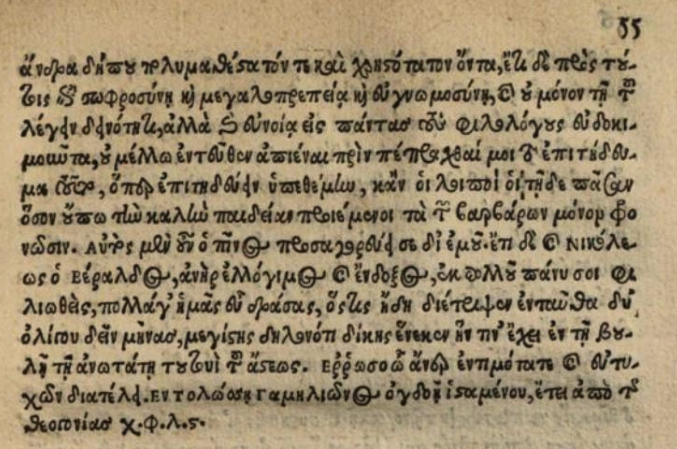 55
ἄνδρα δήπου πολυμαθέστατόν τε καὶ χρηστότατον ὄντα, ἔτι δὲ πρὸς τού-
τοις καὶ σωφροσύνῃ καὶ μεγαλοπρεπείᾳ καὶ εὐγνωμοσύνῃ, καὶ οὐ μόνον τῇ τοῦ
λέγειν δεινότητι, ἀλλὰ καὶ εὐνοίᾳ εἰς πάντας τοὺς φιλολόγους εὐδοκι-
μοῦντα, οὐ μέλλω ἐντεῦθεν ἀπιέναι πρὶν πέπραχθαί μοι τὸ ἐπιτήδευ-
μα τοῦτο, ὅπερ ἐπιτηδεύειν ὑπεθέμην, κἂν οἱ λοιποὶ οἱ τῇδε πᾶσαν
ὅσον οὔπω τὴν καλὴν παιδείαν προιέμενοι τὰ τῶν βαρβάρων μόνον φρο
νῶσιν. Αὐτὸς μὲν οὖν ὁ πῖνος προσαγορεύει σε δι' ἐμοῦ. ἔτι δὲ καὶ Νικόλε-
ως ὁ Βέραλδος, ἀνὴρ ἐλλόγιμος καὶ ἔνδοξος, ἐκ πολλοῦ πάνυ σοι φι
λιωθεὶς, πολλάγ' ἡμᾶς εὖ δράσας, ὅστις ἤδη διέτριψεν ἐνταῦθα δύ'
ὀλίγου δεῖν μῆνας, μεγίστης δηλονότι δίκης ἕνεκεν ἥν τιν' ἔχει ἐν τῇ βου-
λῇ τῇ ἀνωτάτῃ τουτουὶ τοῦ ἄστεως. Ἔρρωσο ὦ ἄνερ ἐντιμότατε καὶ εὐτυ-
χῶν διατέλει. Ἐν Τολώσῃ Γαμηλιῶνος ὀγδοῇ ἱσταμένου, ἔτει ἀπὸ τῆς
θεογονίας χ.φ.λ.ς.